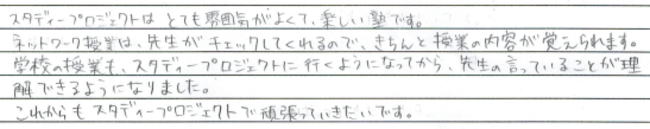 スタディープロジェクトは とても雰囲気がよくて、楽しい塾です。
ネットワーク授業は、先生がチェックしてくれるので、きちんと授業の内容が覚えられます。
学校の授業も、スタディープロジェクトに行くようになってから、先生の言っていることが理
解できるようになりました。
これからもスタディープロジェクトで頑張っていきたいです。